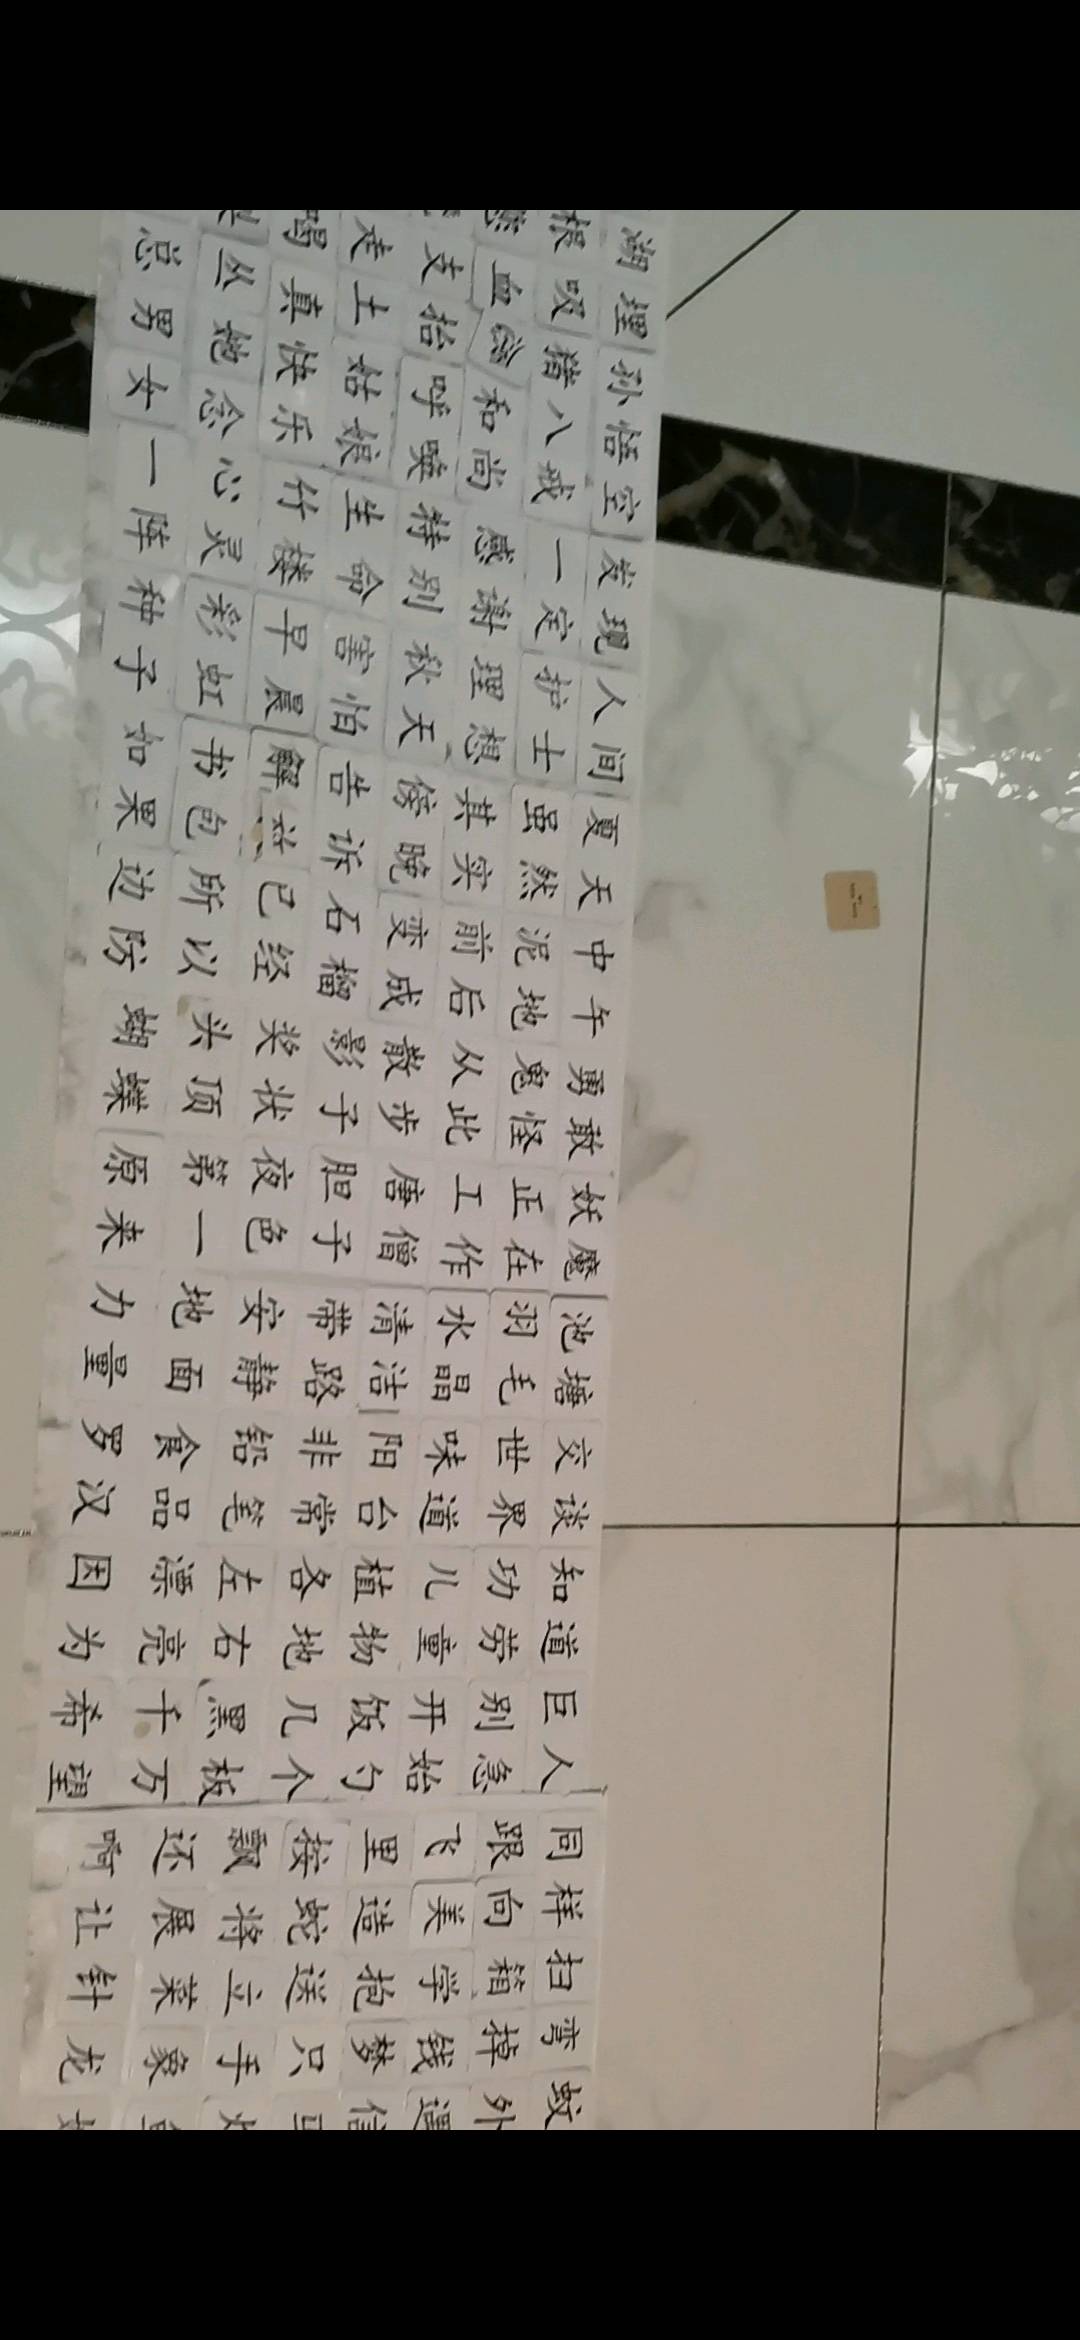 湖 埋 孙悟空 发现 人间 夏天 中午 勇敢 妖魔 池塘 交谈 知道 巨人 同 样 扫 弯 蚊
根 吸 猪八戒 一定 护士 虽然 泥地 鬼怪 正在 羽毛 世界 功劳 别急 跟 向 箱 掉 外
血 和尚 感谢 理想 其实 前后 从此 工作 水晶 味道 儿童 开始 飞 美 学 钱
支 抬 呼唤 特别 秋天 傍晚 变成 散步 唐僧 清洁 阳台 植物 饭勺 里 造 抱 梦 信
走 土 姑娘 生命 害怕 告诉 石榴 影子 胆子 带路 非常 各地 几个 接 蛇 送 只
真 快乐 竹楼 早晨 解 已经 奖状 夜色 安静 铅笔 左右 黑板 飘 将 立 手
丛 她 念 心灵 彩虹 书包 所以 头顶 第一 地面 食品 漂亮 千万 还 展 菜 象
总 男 女 一阵 种子 如果 边防 蝴蝶 原来 力量 罗汉 因为 希望 啊 让 针 龙